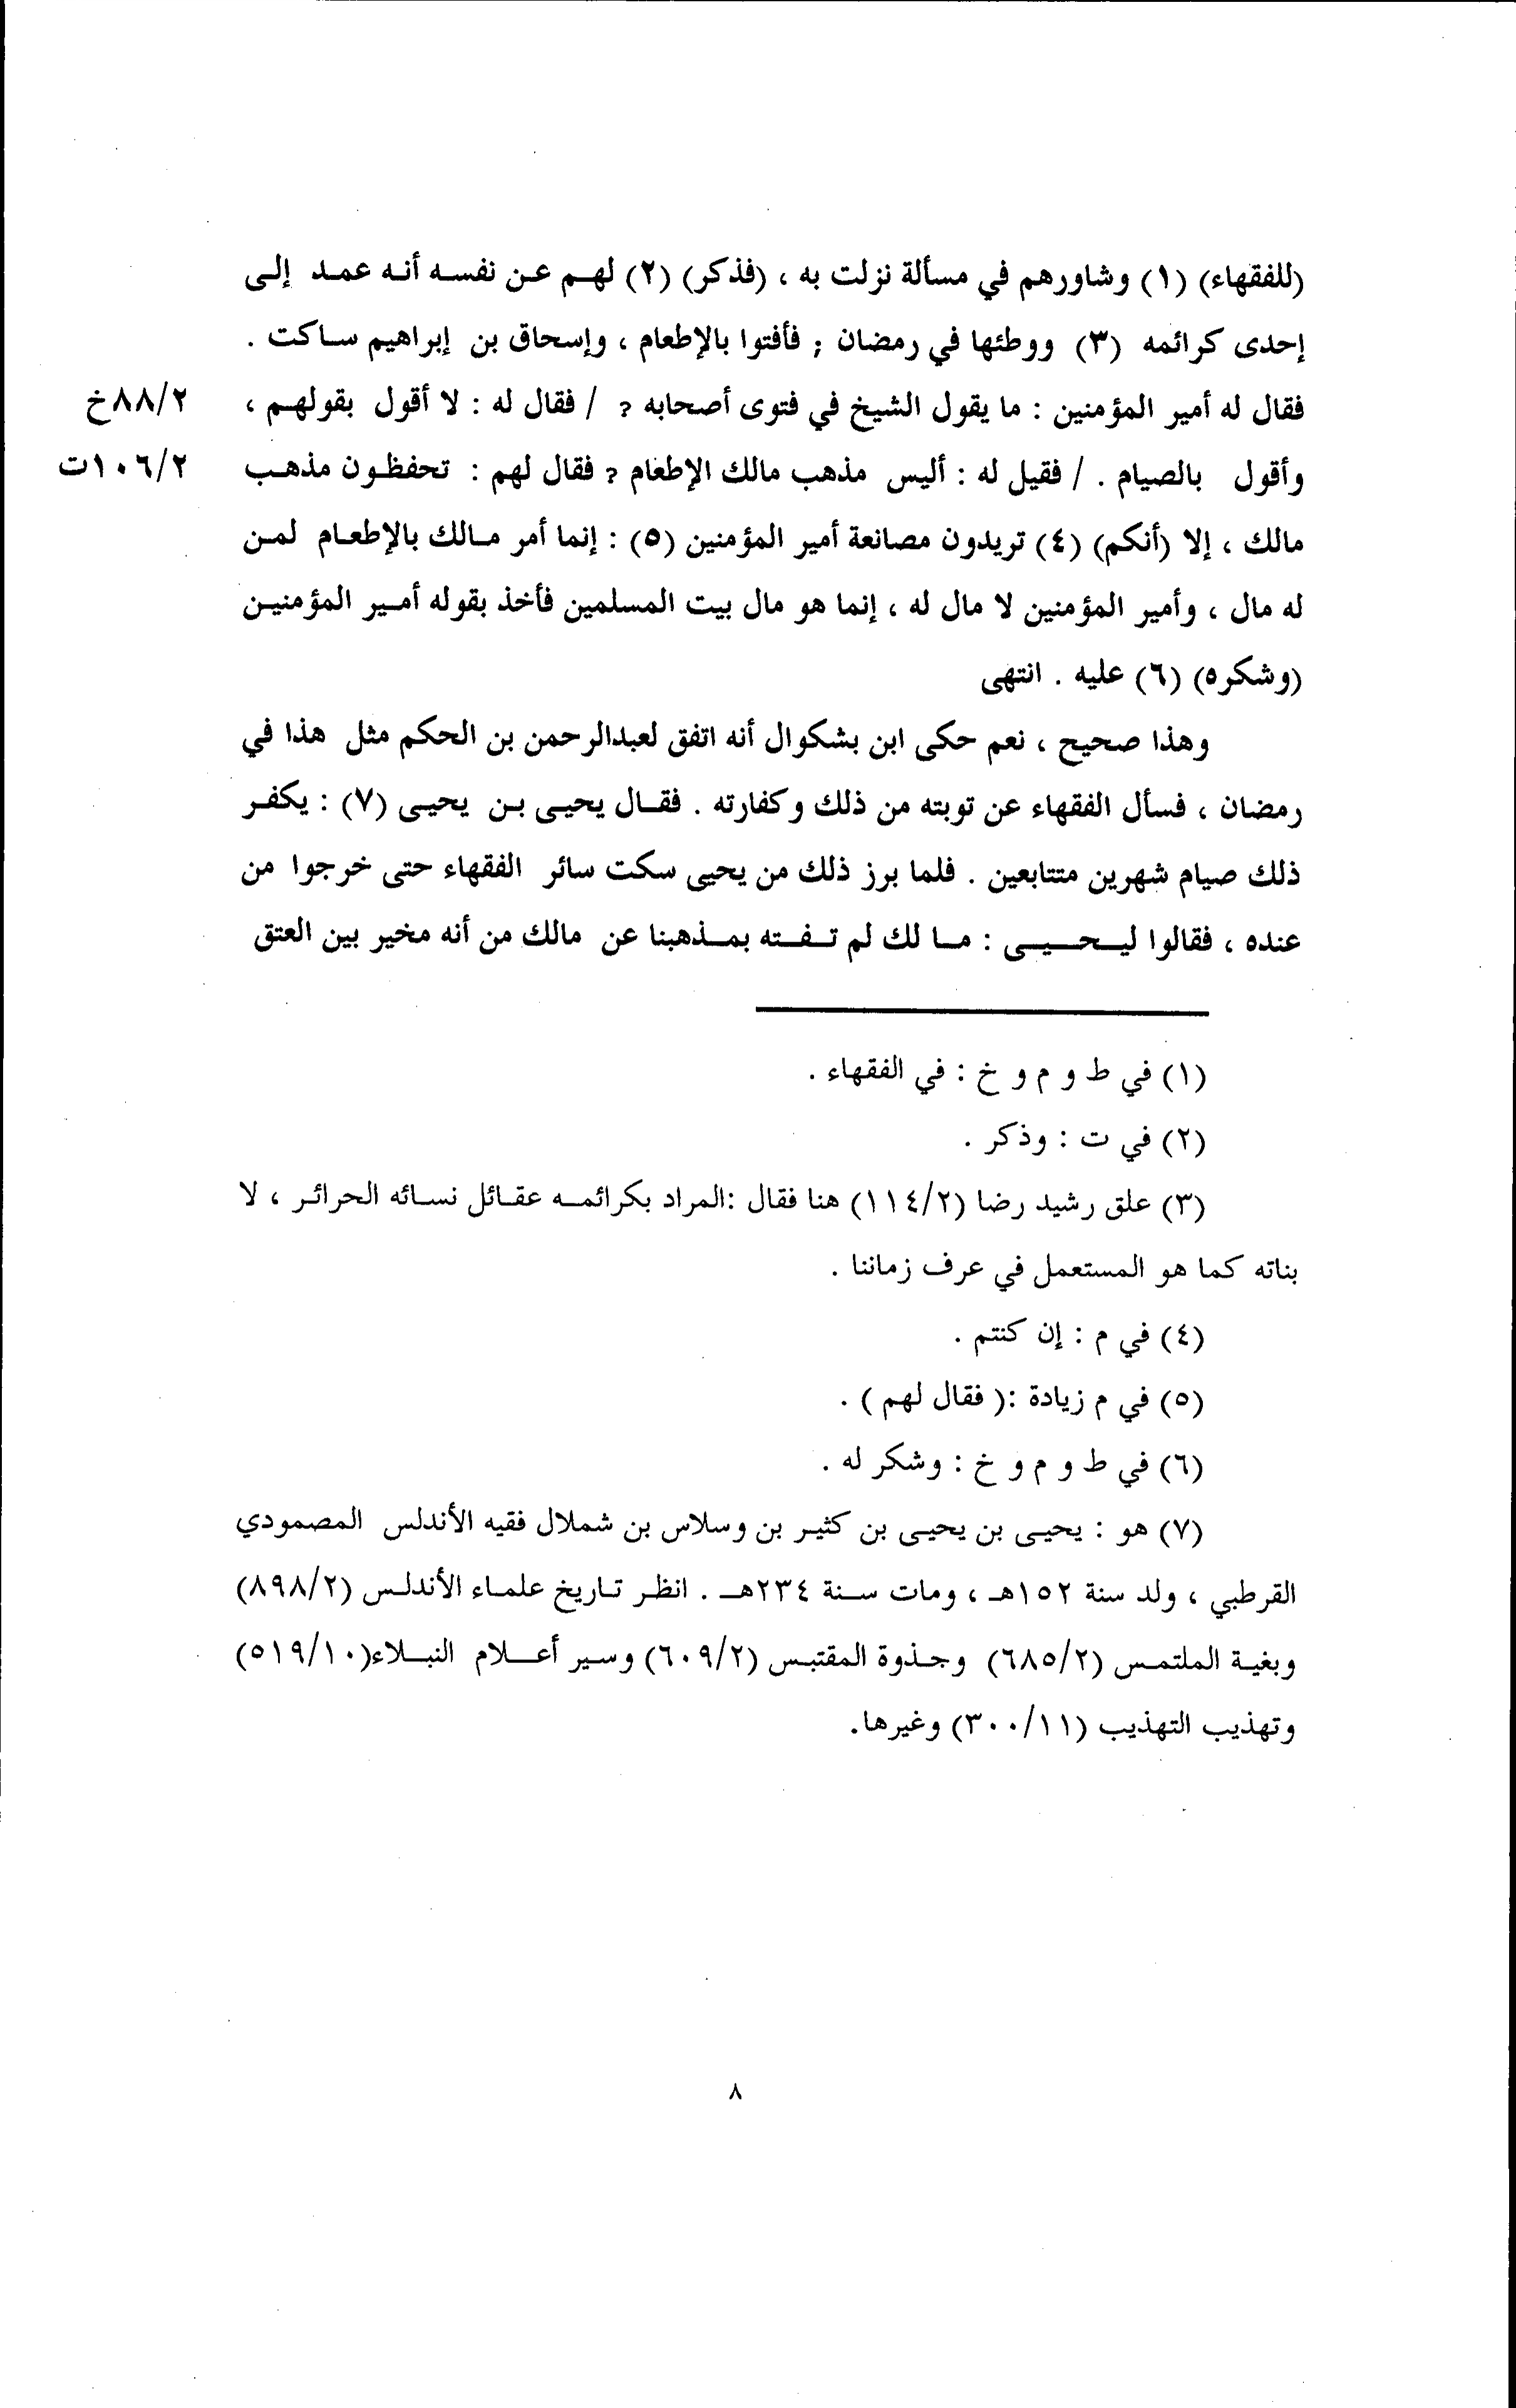 (للفقهاء) (١) وشاورهم في مسألة نزلت به ، (فذكر) (٢) لهم عن نفسه أنه عمد إلى
إحدى كرائمه (٣) ووطئها في رمضان ; فأفتوا بالإطعام ، وإسحاق بن إبراهيم ساكت .
فقال له أمير المؤمنين : ما يقول الشيخ في فتوى أصحابه ? / فقال له : لا أقول بقولهم ، ٨٨/٢خ
وأقول بالصيام . / فقيل له : أليس مذهب مالك الإطعام ? فقال لهم : تحفظون مذهب ١٠٦/٢ت
مالك ، إلا (أنكم) (٤) تريدون مصانعة أمير المؤمنين (٥) : إنما أمر مالك بالإطعام لمن
له مال ، وأمير المؤمنين لا مال له ، إنما هو مال بيت المسلمين فأخذ بقوله أمير المؤمنين
(وشكره) (٦) عليه . انتهى
وهذا صحيح ، نعم حكى ابن بشكوال أنه اتفق لعبدالرحمن بن الحكم مثل هذا في
رمضان ، فسأل الفقهاء عن توبته من ذلك وكفارته . فقال يحيى بن يحيى (٧) : يكفر
ذلك صيام شهرين متتابعين . فلما برز ذلك من يحيى سكت سائر الفقهاء حتى خرجوا من
عنده ، فقالوا ليحيى : ما لك لم تفته بمذهبنا عن مالك من أنه مخير بين العتق
(١) في ط و م و خ : في الفقهاء .
(٢) في ت : وذكر .
(٣) علق رشيد رضا (١١٤/٢) هنا فقال :المراد بكرائمه عقائل نسائه الحرائر ، لا
بناته كما هو المستعمل في عرف زماننا .
(٤) في م : إن كنتم .
(٥) في م زيادة :( فقال لهم ) .
(٦) في ط و م و خ : وشكر له .
(٧) هو : يحيى بن يحيى بن كثير بن وسلاس بن شملال فقيه الأندلس المصمودي
القرطبي ، ولد سنة ١٥٢هـ ، ومات سنة ٢٣٤هـ . انظر تاريخ علماء الأندلس (٨٩٨/٢)
وبغية الملتمس (٦٨٥/٢) وجذوة المقتبس (٦٠٩/٢) وسير أعلام النبلاء(٥١٩/١٠)
وتهذيب التهذيب (٣٠٠/١١) وغيرها.
٨